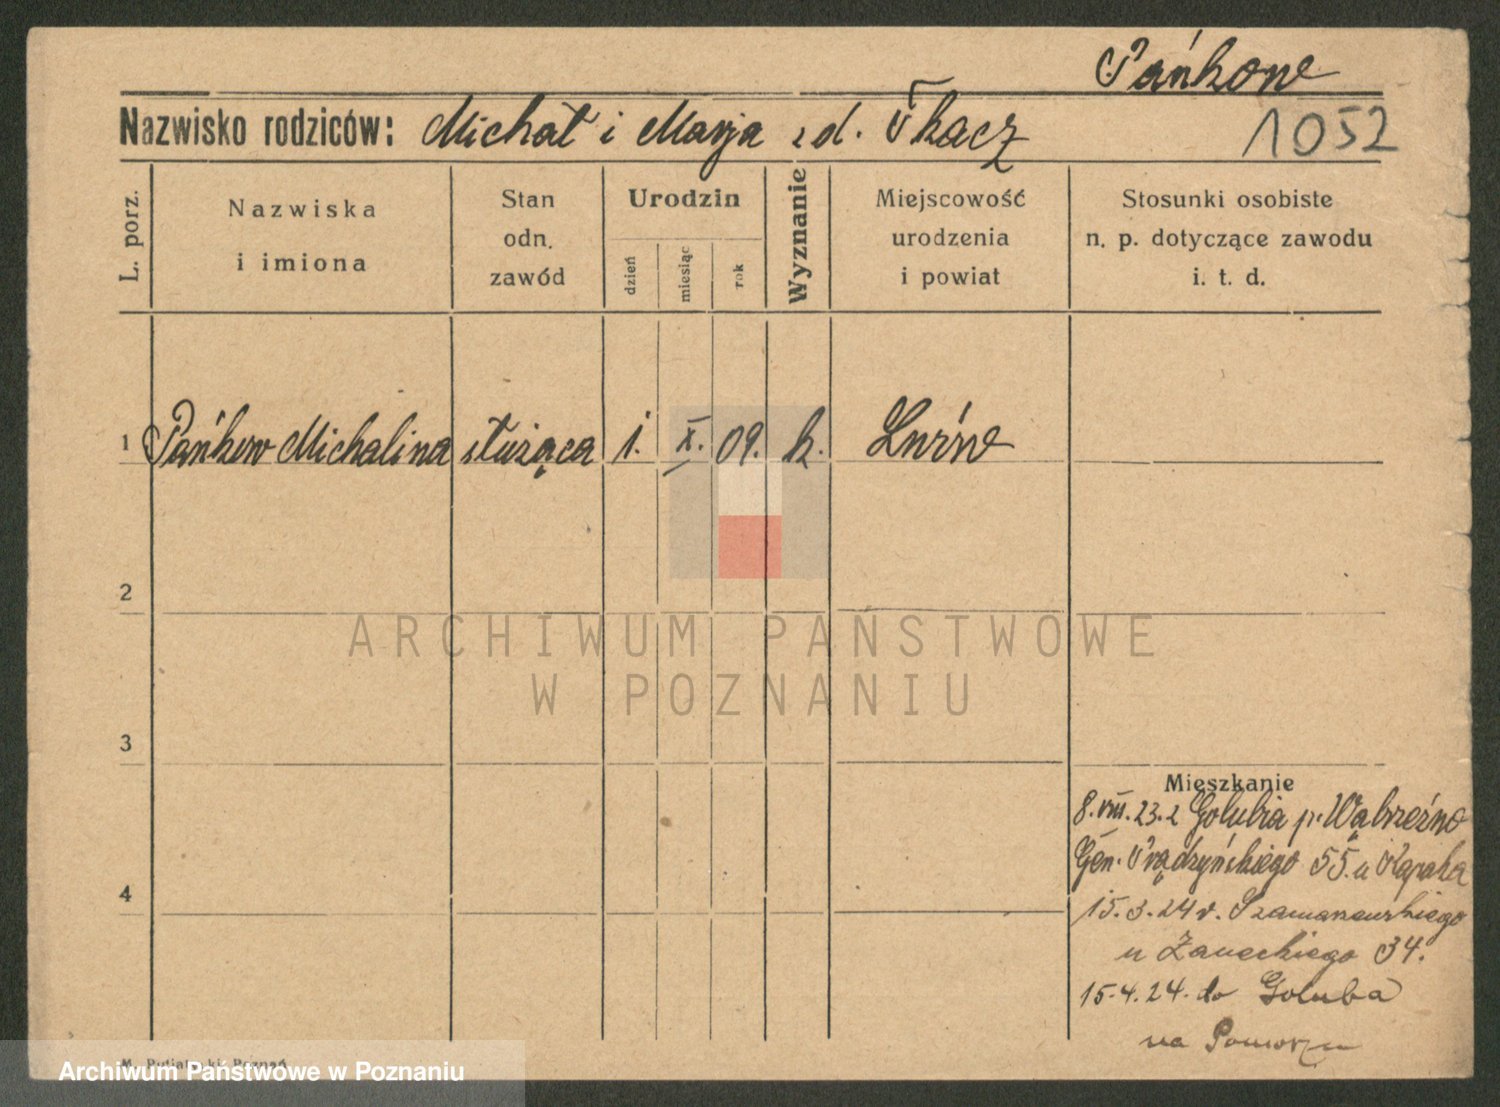 Pańkow
Nazwisko rodziców: Michał i Marja z d. Tkacz
1052
L. porz.
Nazwiska
i imiona
Stan
odn.
zawód
Urodzin
dzień
miesiąc
rok
Wyznanie
Miejscowość
urodzenia
i powiat
Stosunki osobiste
n. p. dotyczące zawodu
i. t. d.
1 Pańkow Michalina służąca 1. X. 09. k. Lwów
2
ARCHIWUM PAŃSTWOWE
W POZNANIU
3
Mieszkanie
8.VIII.23. z Golubia p. Wąbrzeźno
Gen. Prądzyńskiego 55. u
4
15.3.24 v. Szamarzewskiego
u 34.
15.4.24. do Goluba
na Pomorzu
M. Putiatycki Poznań
Archiwum Państwowe w Poznaniu